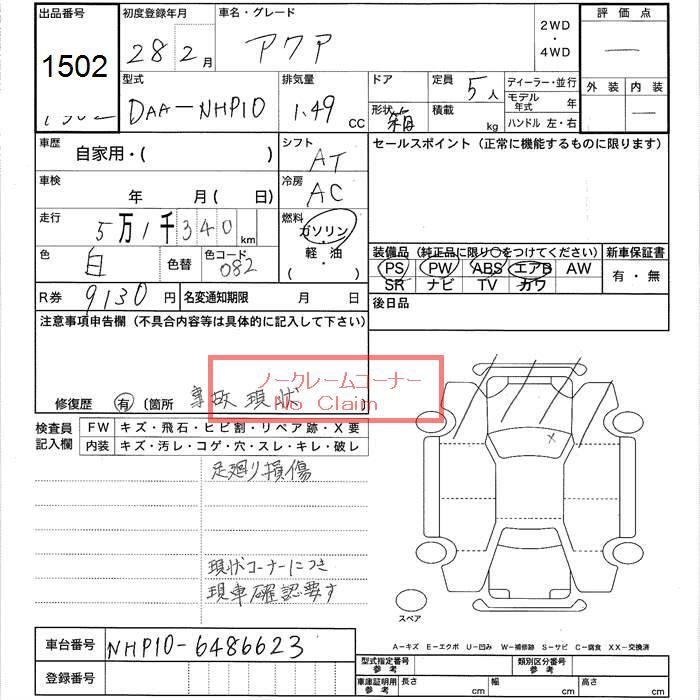 出品番号 初度登録年月 車名・グレード 評価点
1502 28 2月 アクア 2WD・4WD —
型式 排気量 ドア 定員 ディーラー・並行 外装 内装
DAA-NHP10 1.49 CC 形状 箱 積載 kg 5人 モデル年式 年 —
ハンドル 左・右
車歴 自家用・( ) シフト AT セールスポイント(正常に機能するものに限ります)
車検 年 月( 日) 冷房 AC
走行 5万1千340km 燃料 ガソリン・軽・油 ( )
色 白 色替 色コード 082 装備品(純正品に限り○をつけてください) 新車保証書
PS PW ABS エアB AW 有・無
SR ナビ TV カワ
R券 9130円 名変通知期限 月 日 後日品
注意事項申告欄(不具合内容等は具体的に記入して下さい)
ノークレームコーナー
No Claim
修復歴 有 〔箇所 事故現状 〕
検査員記入欄 FW キズ・飛石・ヒビ割・リペア跡・X要
内装 キズ・汚レ・コゲ・穴・スレ・キレ・破レ
足廻り損傷
X
現状コーナーにつき
現車確認要す
スペア
車台番号 NHP10-6486623 A-キズ E-エクボ U-凹み W-補修跡 S-サビ C-腐食 XX-交換済
登録番号 型式指定番号 参考 類別区分番号 参考
車庫証明用 参考 長さ cm 幅 cm 高さ cm